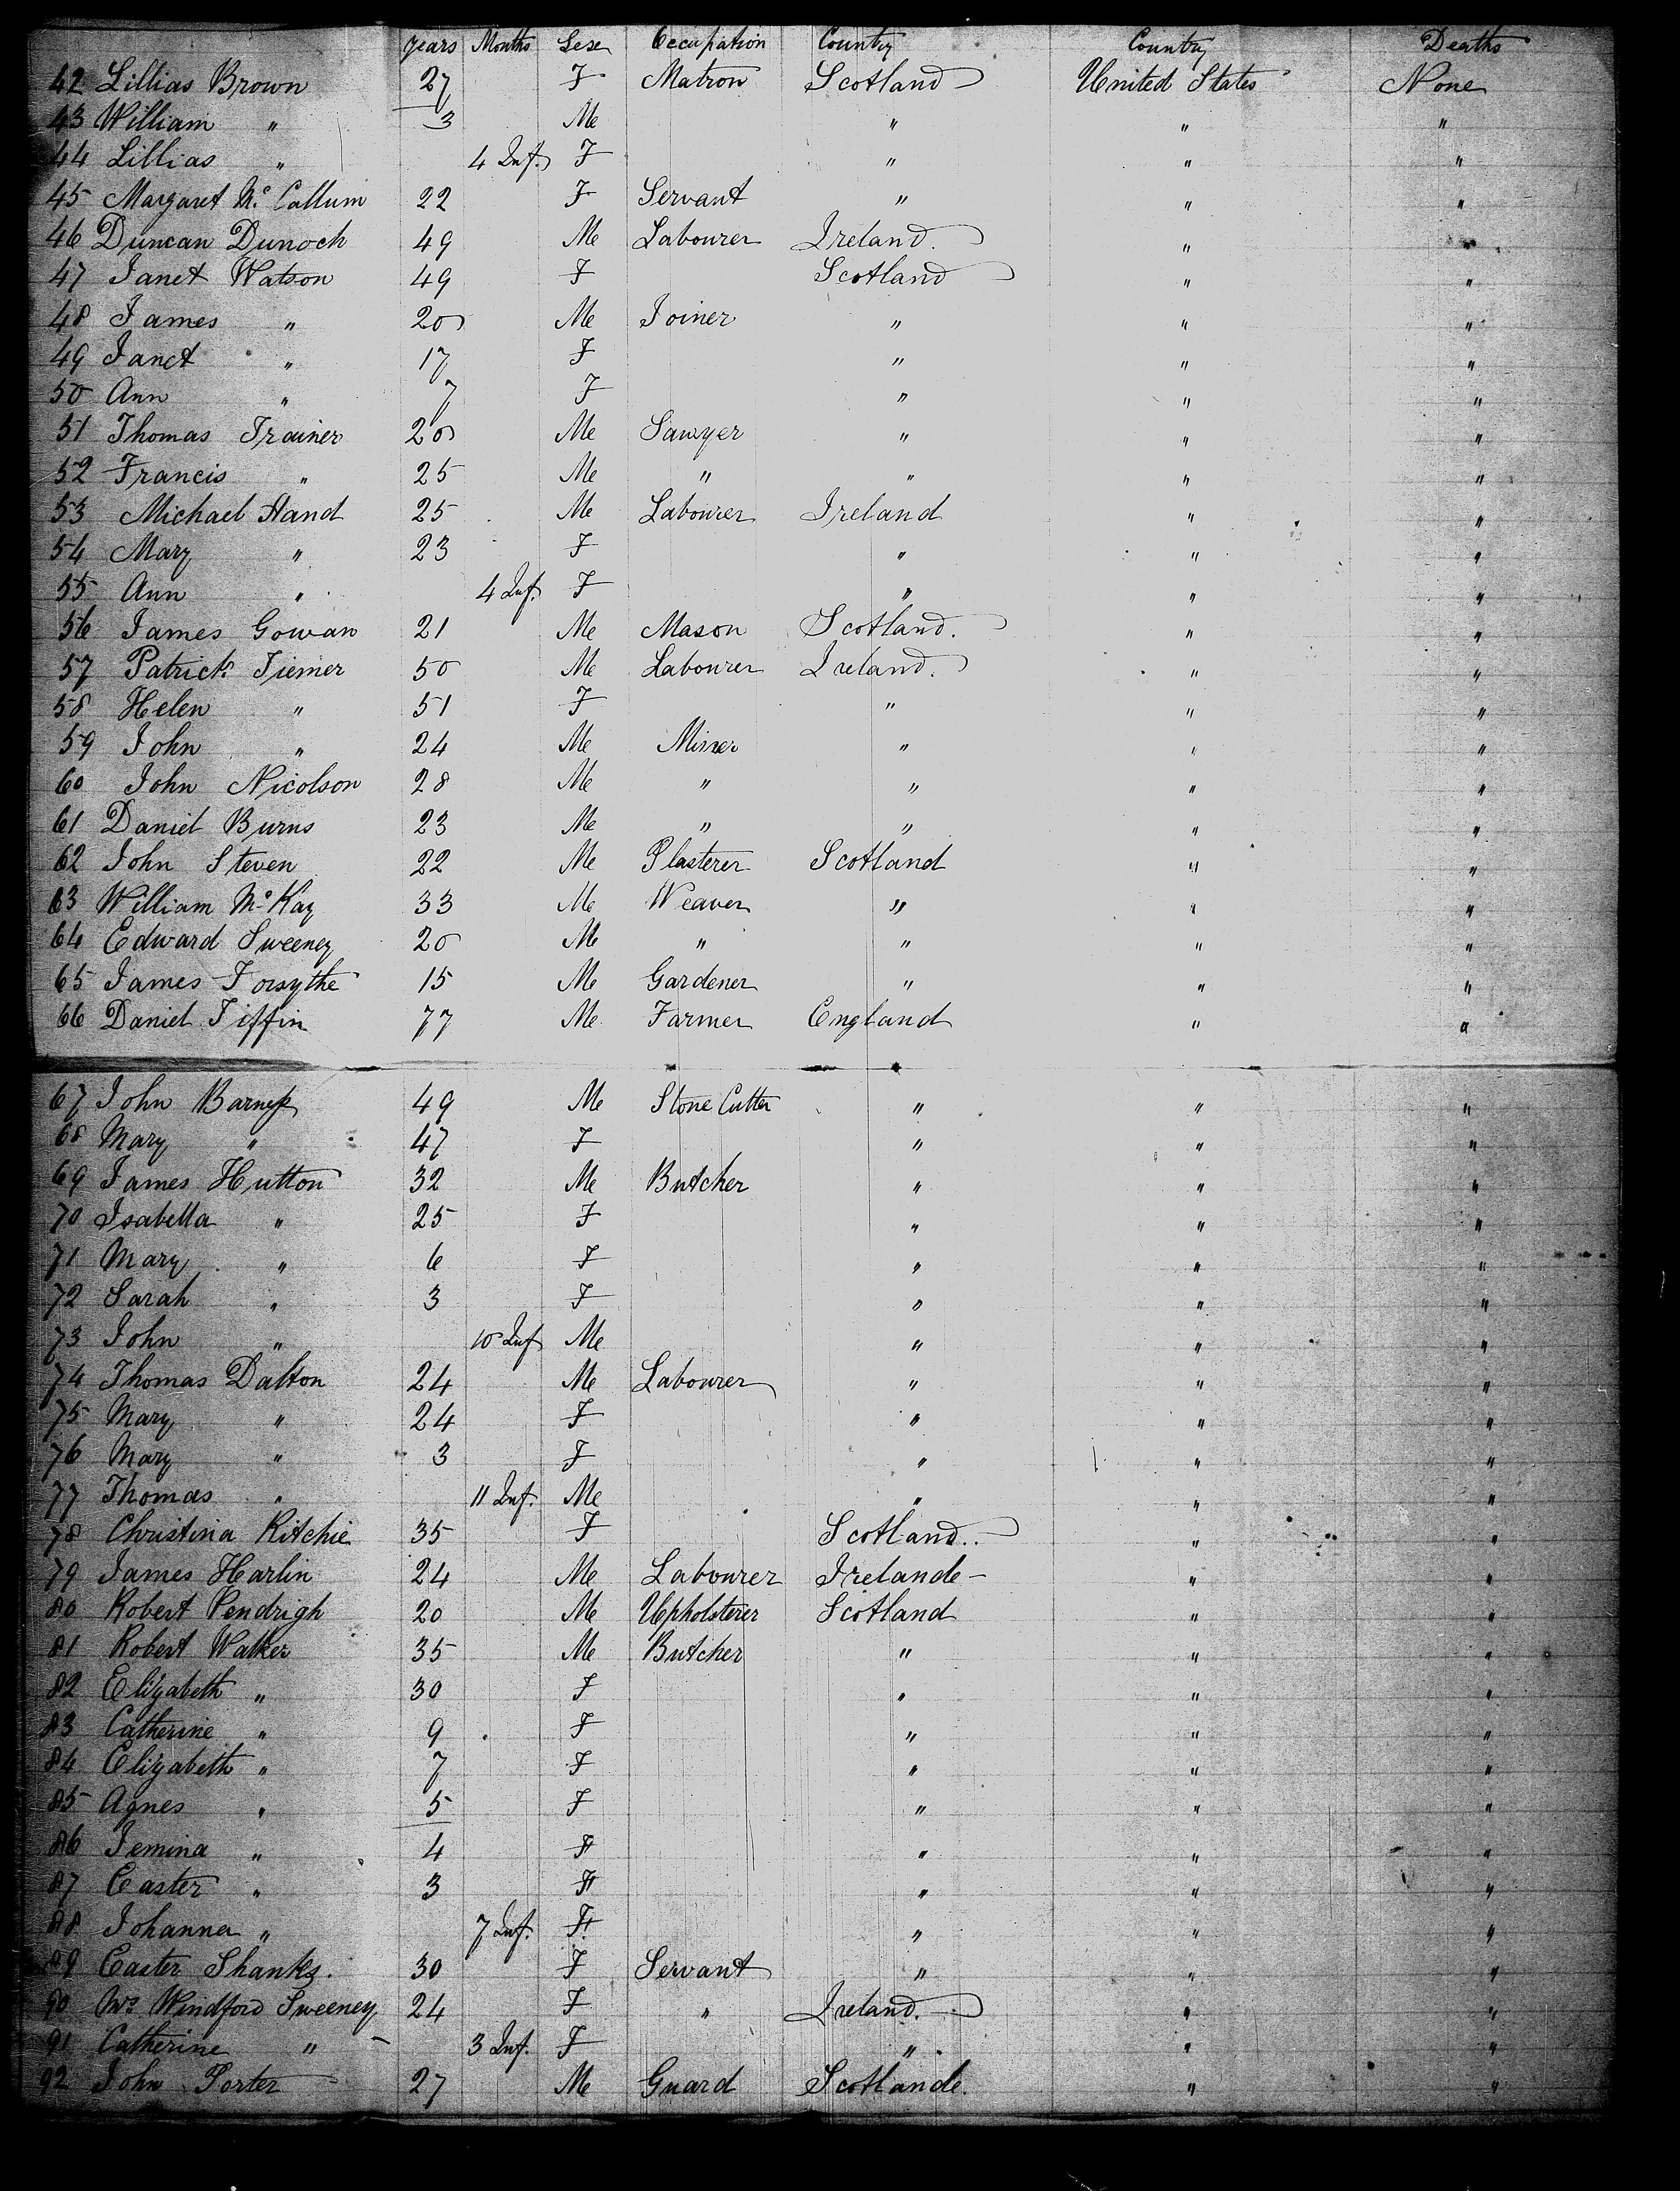 years Months Sex Occupation Country Country Deaths
42 Lillias Brown 27 F Matron Scotland United States None
43 William " 3 Me " " "
44 Lillias " 4 Inf. F " " "
45 Margaret Mc Callum 22 F Servant " " "
46 Duncan Dunoch 49 Me Labourer Ireland. " "
47 Janet Watson 49 F Scotland " "
48 James " 20 Me Joiner " " "
49 Janet " 17 F " " "
50 Ann " 7 F " " "
51 Thomas Trainer 20 Me Sawyer " " "
52 Francis " 25 Me " " " "
53 Michael Hand 25 Me Labourer Ireland " "
54 Mary " 23 F " " "
55 Ann " 4 Inf. F " " "
56 James Gowan 21 Me Mason Scotland. " "
57 Patrick Tiemer 50 Me Labourer Ireland. " "
58 Helen " 51 F " " "
59 John " 24 Me Miner " " "
60 John Nicolson 28 Me " " " "
61 Daniel Burns 23 Me " " " "
62 John Steven 22 Me Plasterer Scotland " "
63 William McKay 33 Me Weaver " " "
64 Edward Sweeney 20 Me " " " "
65 James Forsythe 15 Me Gardener " " "
66 Daniel Tiffin 77 Me Farmer England " "
67 John Barness 49 Me Stone Cutter " " "
68 Mary " 47 F " " "
69 James Hutton 32 Me Butcher " " "
70 Isabella " 25 F " " "
71 Mary " 6 F " " "
72 Sarah " 3 F " " "
73 John " 10 Inf Me " " "
74 Thomas Dalton 24 Me Labourer " " "
75 Mary " 24 F " " "
76 Mary " 3 F " " "
77 Thomas " 11 Inf. Me " " "
78 Christina Ritchie 35 F Scotland.. " "
79 James Harlin 24 Me Labourer Irelande " "
80 Robert Pendrigh 20 Me Upholsterer Scotland " "
81 Robert Walker 35 Me Butcher " " "
82 Elizabeth " 30 F " " "
83 Catherine " 9 F " " "
84 Elizabeth " 7 F " " "
85 Agnes " 5 F " " "
86 Jemina " 4 F " " "
87 Easter " 3 F " " "
88 Johanna " 7 Inf. F. " " "
89 Easter Shanks. 30 F Servant " " "
90 Mrs Windford Sweeney 24 F " Ireland. " "
91 Catherine " 3 Inf. F " " "
92 John Porter 27 Me Guard Scotlande. " "